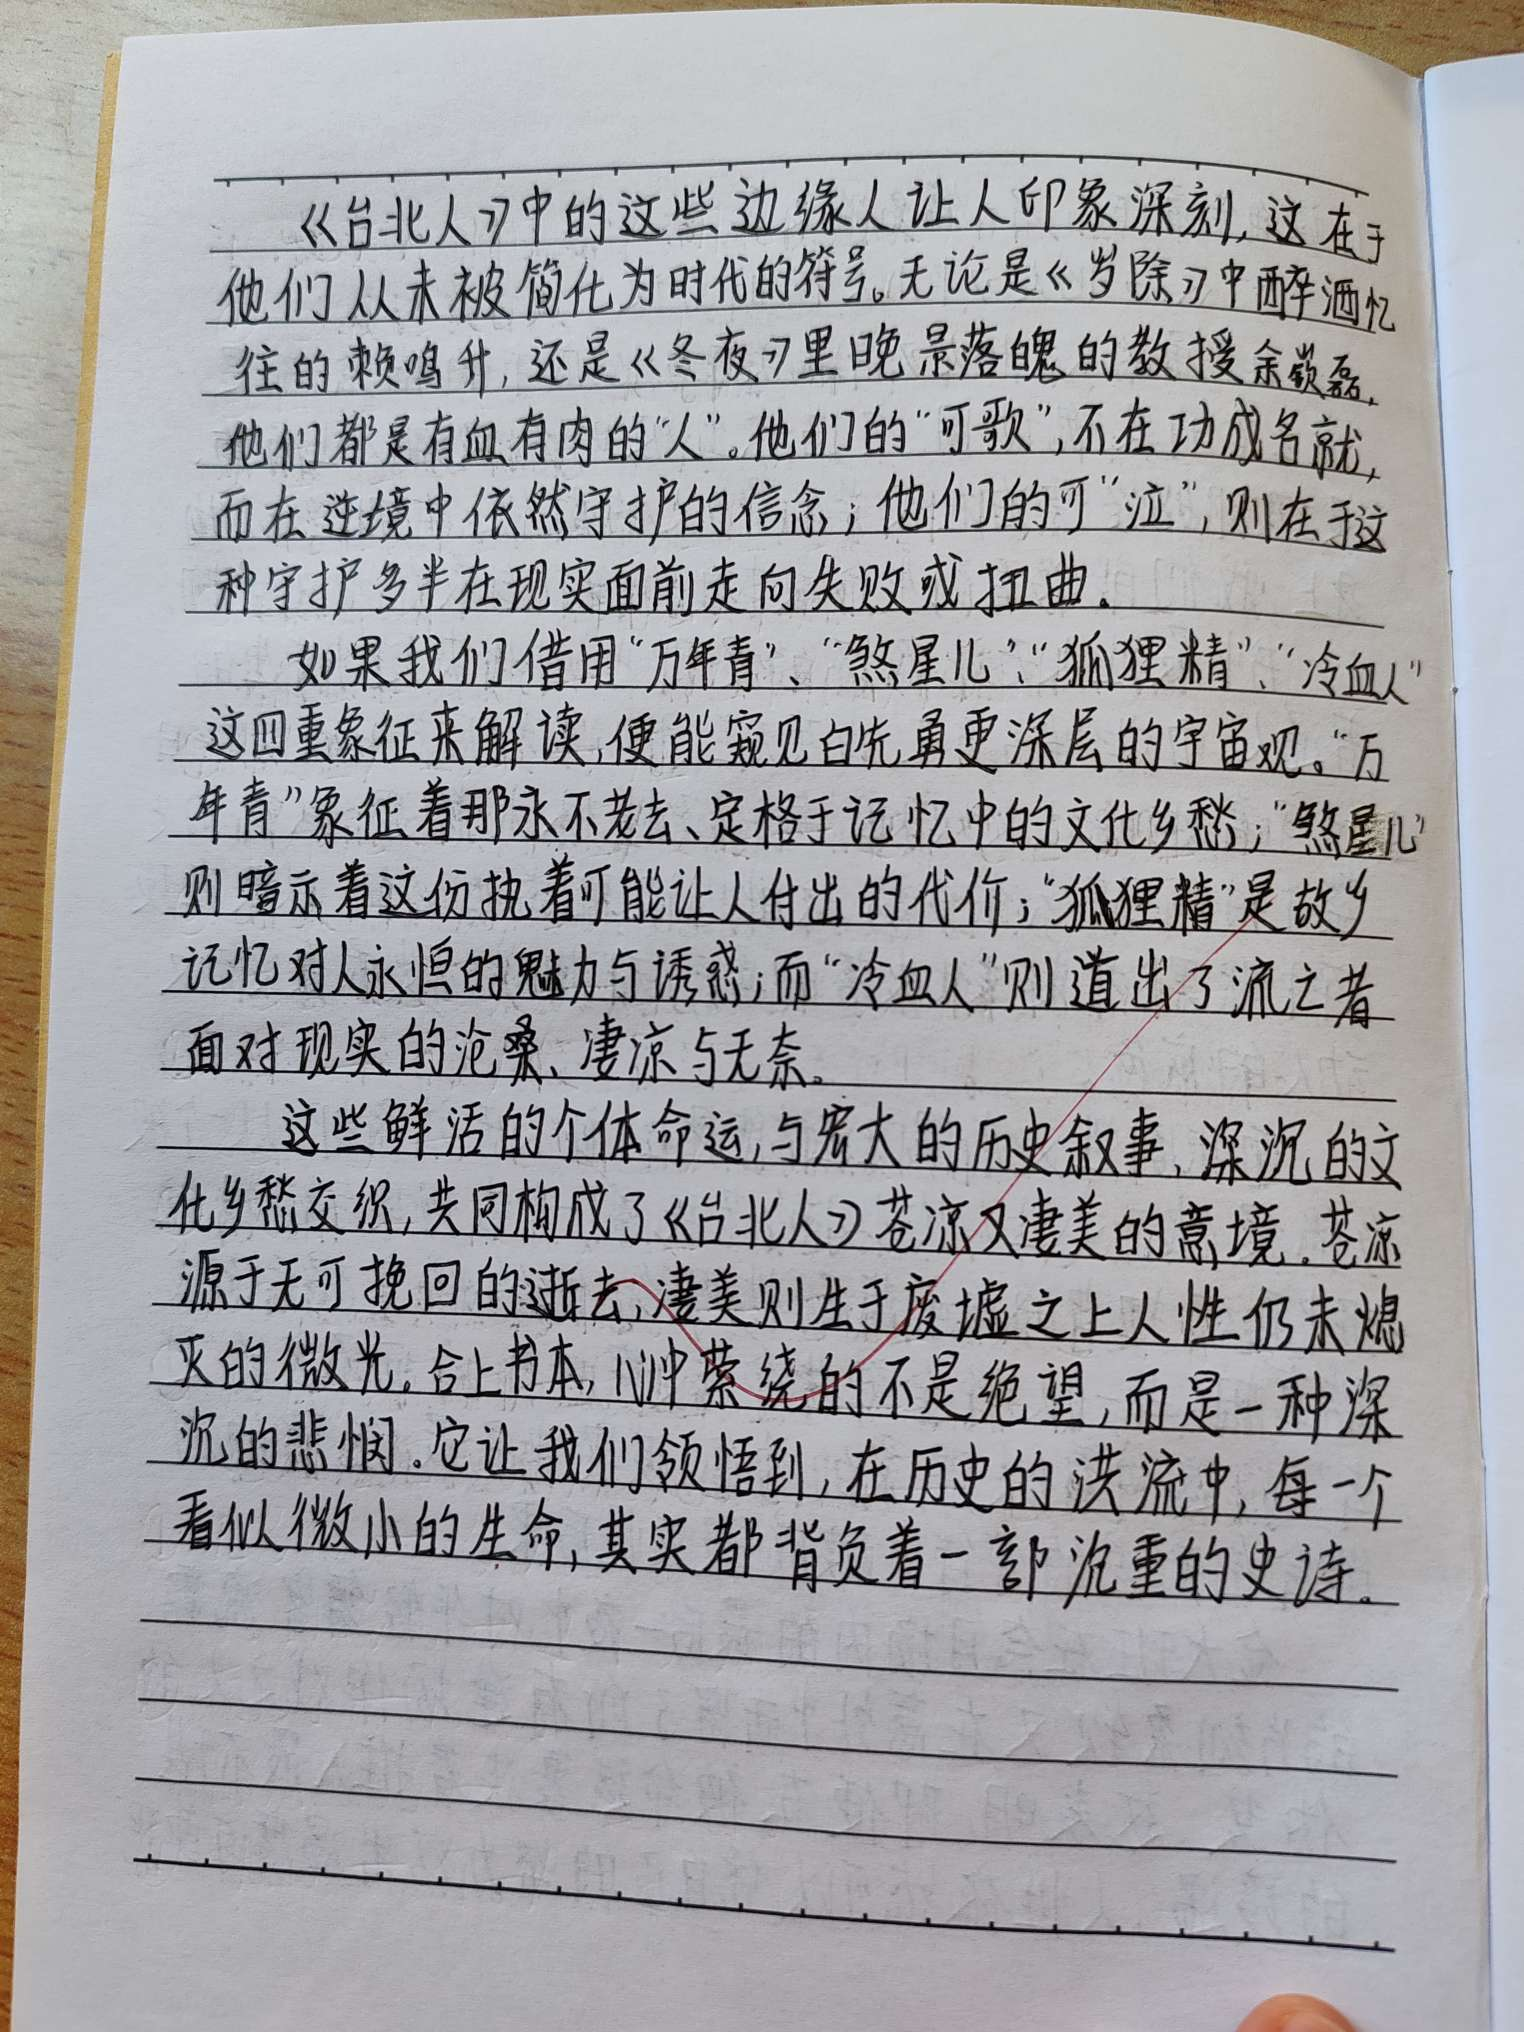 《台北人》中的这些边缘人让人印象深刻,这在于
他们从未被简化为时代的符号。无论是《岁除》中醉酒忆
往的赖鸣升,还是《冬夜》里晚景落魄的教授余嵚磊,
他们都是有血有肉的“人”。他们的“可歌”,不在功成名就,
而在逆境中依然守护的信念;他们的可“泣”,则在于这
种守护多半在现实面前走向失败或扭曲。
如果我们借用“万年青”、“煞星儿”、“狐狸精”、“冷血人”
这四重象征来解读,便能窥见白先勇更深层的宇宙观。“万
年青”象征着那永不老去、定格于记忆中的文化乡愁;“煞星儿”
则暗示着这份执着可能让人付出的代价;“狐狸精”是故乡
记忆对人永恒的魅力与诱惑;而“冷血人”则道出了流亡者
面对现实的沧桑、凄凉与无奈。
这些鲜活的个体命运,与宏大的历史叙事、深沉的文
化乡愁交织,共同构成了《台北人》苍凉又凄美的意境。苍凉
源于无可挽回的逝去,凄美则生于废墟之上人性仍未熄
灭的微光。合上书本,心中萦绕的不是绝望,而是一种深
沉的悲悯。它让我们领悟到,在历史的洪流中,每一个
看似微小的生命,其实都背负着一部沉重的史诗。